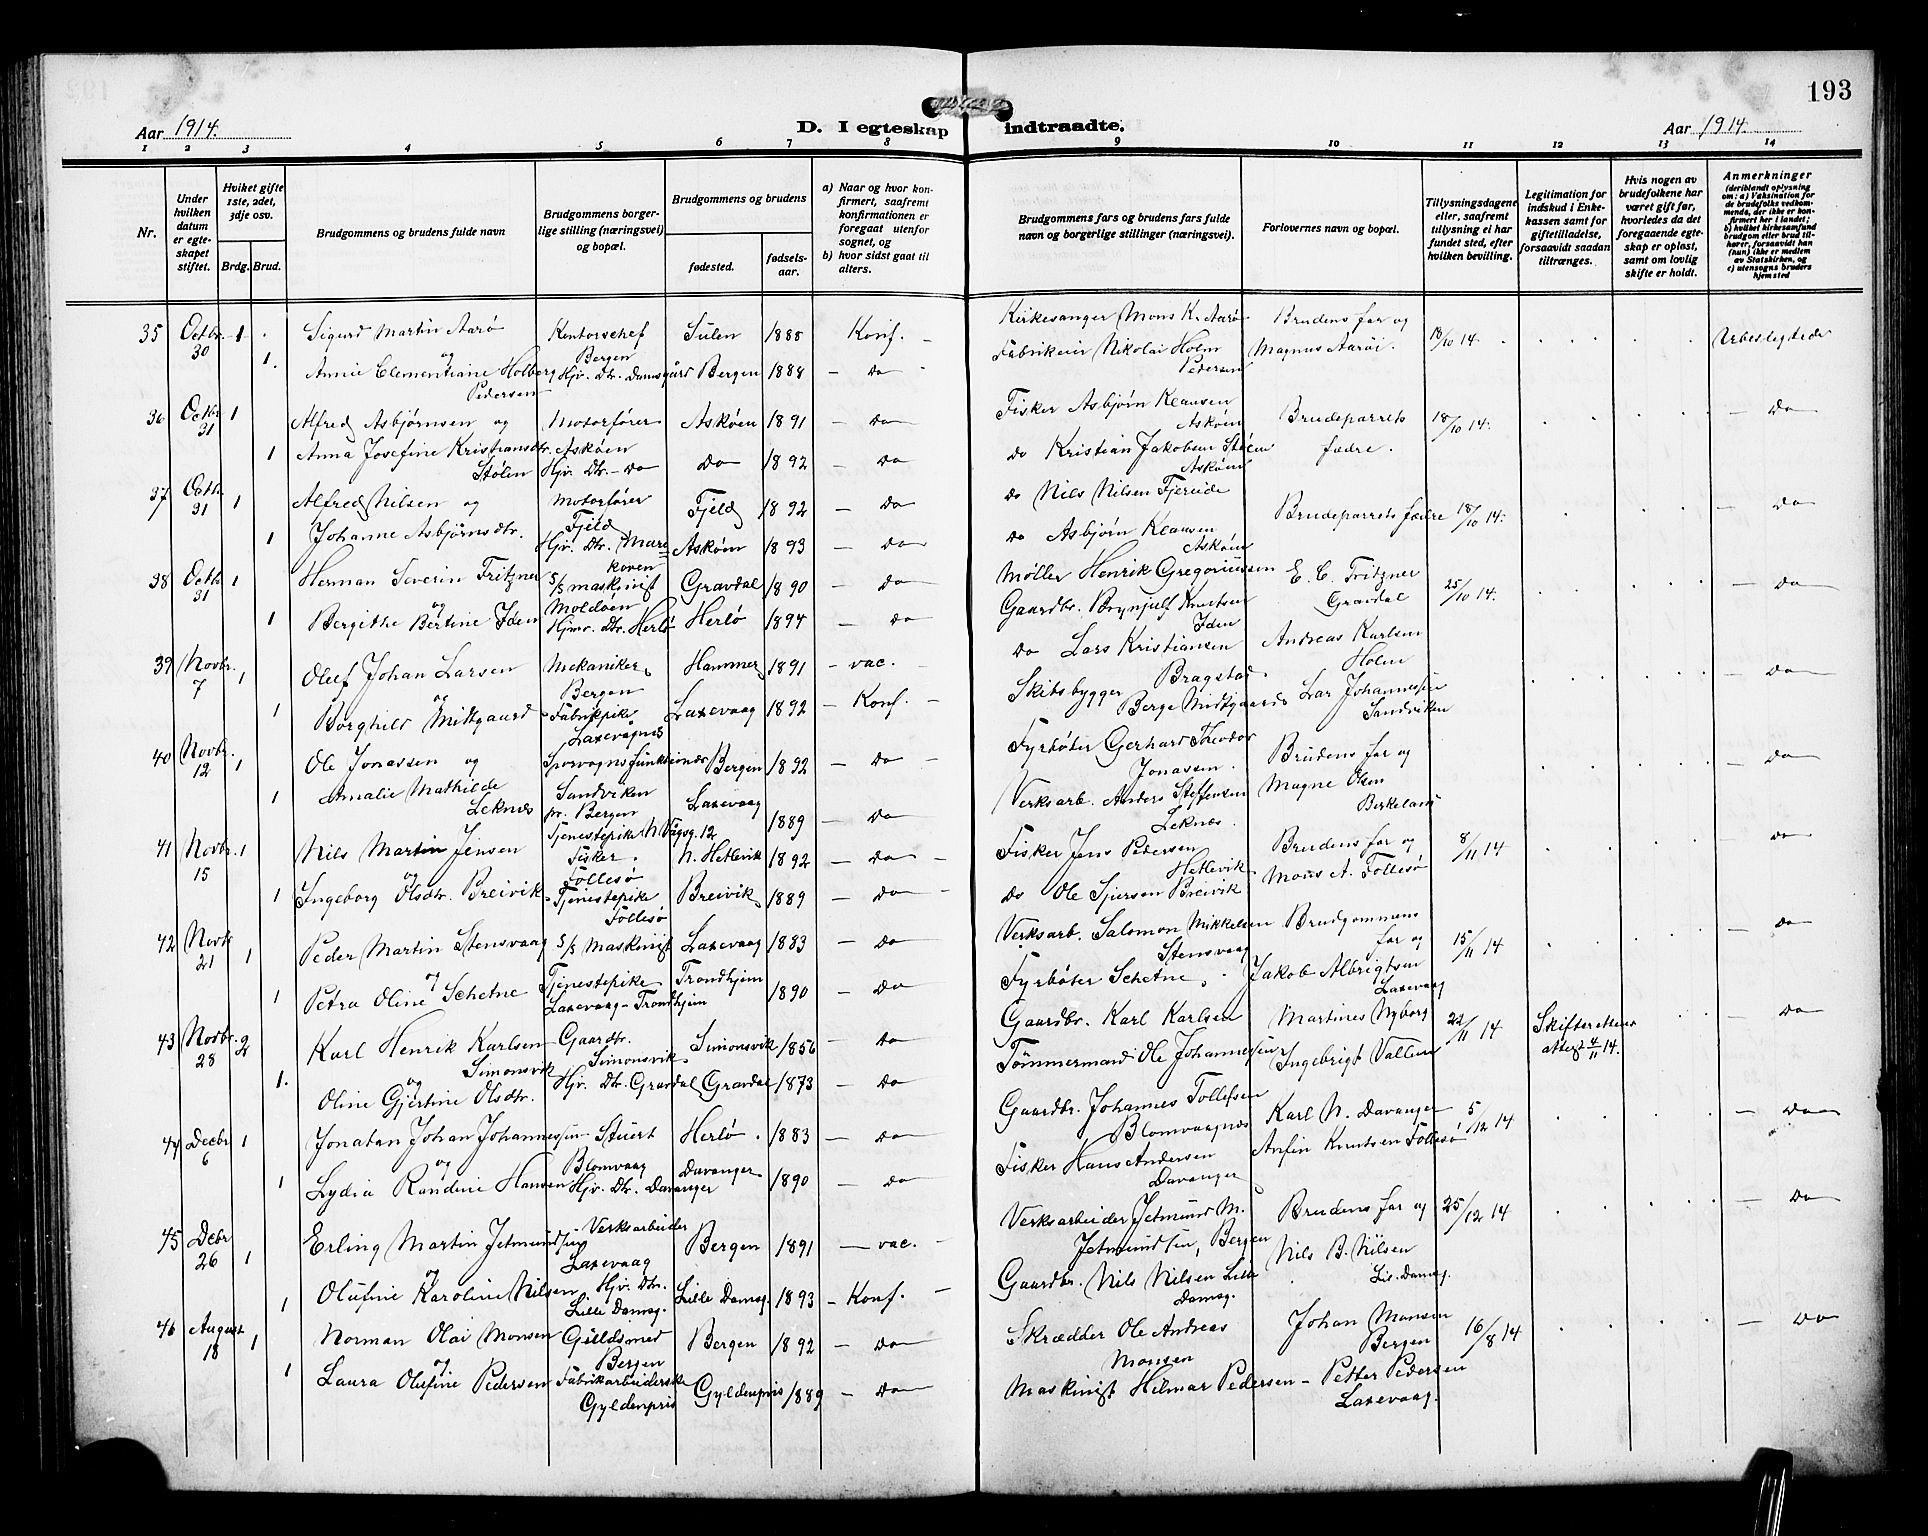 193
Aar 1914.
D. I egteskap indtraadte.
Aar 1914.
1 2 3 4 5 6 7 8 9 10 11 12 13 14
Nr.
Under hvilken datum er egteskapet stiftet.
Hviket gifte 1ste, 2det, 3dje osv.
Brdg. Brud.
Brudgommens og brudens fulde navn
Brudgommens borgerlige stilling (næringsvei) og bopæl.
Brudgommens og brudens
fødested.
fødselsaar.
a) Naar og hvor konfirmert, saafremt konfirmationen er foregaat utenfor sognet, og
b) hvor sidst gaat til alters.
Brudgommens fars og brudens fars fulde navn og borgerlige stillinger (næringsvei).
Forlovernes navn og bopæl.
Tillysningsdagene eller, saafremt tillysning ei har fundet sted, efter hvilken bevilling.
Legitimation for indskud i Enkekassen samt for giftetilladelse, forsaavidt saadan tiltrænges.
Hvis nogen av brudefolkene har været gift før, hvorledes da det foregaaende egteskap er opløst, samt om lovlig skifte er holdt.
Anmerkninger
(deriblandt oplysning om: a) Vaksination for de brudefolks vedkommende, der ikke er konfirmert her i landet; b) hvilket kirkesamfund brudgom eller brud tilhører, forsaavidt han (hun) ikke er medlem av Statskirken, og c) utensogns bruders hjemsted
35 Octbr. 30 1 Sigurd Martin Aarø Kontorschef Bergen Sulen 1888 Konf. – Kirkesanger Mons K. Aarø Brudens far og 18/10 14. Ubeslegtede
og 1. Annie Clementiane Holberg Pedersen Hjv. Dtr. Damsgård Bergen 1888 – do Fabrikeier Nikolai Holm Pedersen Magnus Aarøi.
36 Octbr 31 1 Alfred Asbjørnsen og Motorfører Askøen Askøen 1891 – do Fisker Asbjørn Klausen Askøen Brudeparrets fædre. 18/10 14. – do
1 Anna Josefine Kristiansdtr. Stølen Hjv. Dtr. – do do 1892 – do do Kristian Jakobsen Stølen Askøen
37 Octb. 31 1 Alfred Nilsen og Motorfører Fjeld Fjeld 1892 – do do Nils Nilsen Fjereide Brudeparrets fædre 18/10 14. – do
1 Johanne Asbjørnsdtr. Hjv. Dtr. Marikoven Askøen 1893 – do do Asbjørn Klausen Askøen
38 Octb. 31 1 Herman Severin Fritzner S/S maskinist Moldøen Gravdal 1890 – do Møller Henrik Gregoriussen E. C. Fritzner Gravdal 25/10 14. – do
og 1 Bergithe Bertine Iden Hjmv. Dtr. Herlø Herlø 1894 – do Gaardbr. Brynjulf Knutsen Iden
39 Novbr. 7 1 Oluf Johan Larsen Mekaniker Bergen Hammer 1891 – vac. – do Lars Kristiansen Bragstad Andreas Karlsen Holm – do
og 1 Borghild Midtgaard Fabrikpike Laxevågnes Laxevaag 1892 – Konf. – Skibsbygger Berge Midtgaard Lar Johannessen Sandviken
40 Novbr. 12 1 Ole Jonassen og Sporvognsfunktionær Sandviken pr. Bergen Bergen 1892 – do – Fyrbøter Gerhard Theodor Jonassen. Brudens far og – do
1 Amalie Mathilde Leknes Tjenestepike N Vågsg. 12 Laxevaag 1889 – do Verksarb. Anders Steffensen Leknes. Magne Olsen Birkeland
41 Novbr. 15 1 Nils Martin Jensen Fisker. Follesø N. Hetlevik 1892 – do – Fisker Jens Pedersen Hetlevik Brudens far og 8/11 14 do
og 1 Ingeborg Olsdtr. Breivik Tjenestepike Follesø Breivik 1889 – do do Ole Sjursen Breivik Mons A. Follesø
42 Novb. 21 1 Peder Martin Stensvaag S/S Maskinist Laxevaag 1883 – do Verksarb. Salomon Mikkelsen Stensvaag Brudgommens far og 15/11 14 – do
og 1 Petra Oline Schetne Tjenestepike Laxevaag – Trondhjem Trondhjem 1890 – do Fyrbøter Schetne. Jakob Albrigtsen Laxevaag
43 Novbr. 28 2 Karl Henrik Karlsen Simonsvik Gaardbr. Simonsvik Simonsvik 1856 – do Gaardbr. Karl Karlsen Martines Nyborg 22/11 14 Skifterettens attest 4/11 14. – do
og 1. Oline Gjertine Olsdtr. Hjv. Dtr. Gravdal Gravdal 1873 – do Tømmermand Ole Johannessen Ingebrigt Vallem
44 Decbr 6 1 Jonatan Johan Johannessen Stuert Blomvaag Herlø. 1883 – do Gaardbr. Johannes Tollefsen Blomvaagnes Karl N. Davanger 5/12 14 – do
og 1 Lydia Randine Hansen Hjv. Dtr. Davanger Davanger 1890 – do Fisker Hans Andersen Davanger Anfin Knutsen Follesø
45 Decbr 26 1 Erling Martin Jetmundsen Verksarbeider Laxevaag Bergen 1891 – vac. – Verksarbeider Jetmund M. Jetmundsen, Bergen Brudens far og 25/12 14 – do
og 1 Olufine Karoline Nilsen Hjv. Dtr. Lille Damsg. Lille Damsg. 1893 – Konf. – Gaardbr. Nils Nilsen Lille Damsg. Nils B. Nilsen Lil. Damsg.
46 August 18 1 Norman Olai Monsen Guldsmed Bergen Bergen 1892 – do Skrædder Ole Andreas Monsen Johan Monsen Bergen 16/8 14 – do
og 1 Laura Olufine Pedersen Fabrikarbeiderske Gyldenpris Gyldenpris 1889 – do Maskinist Hilmar Pedersen – Petter Pedersen Laxevaag.